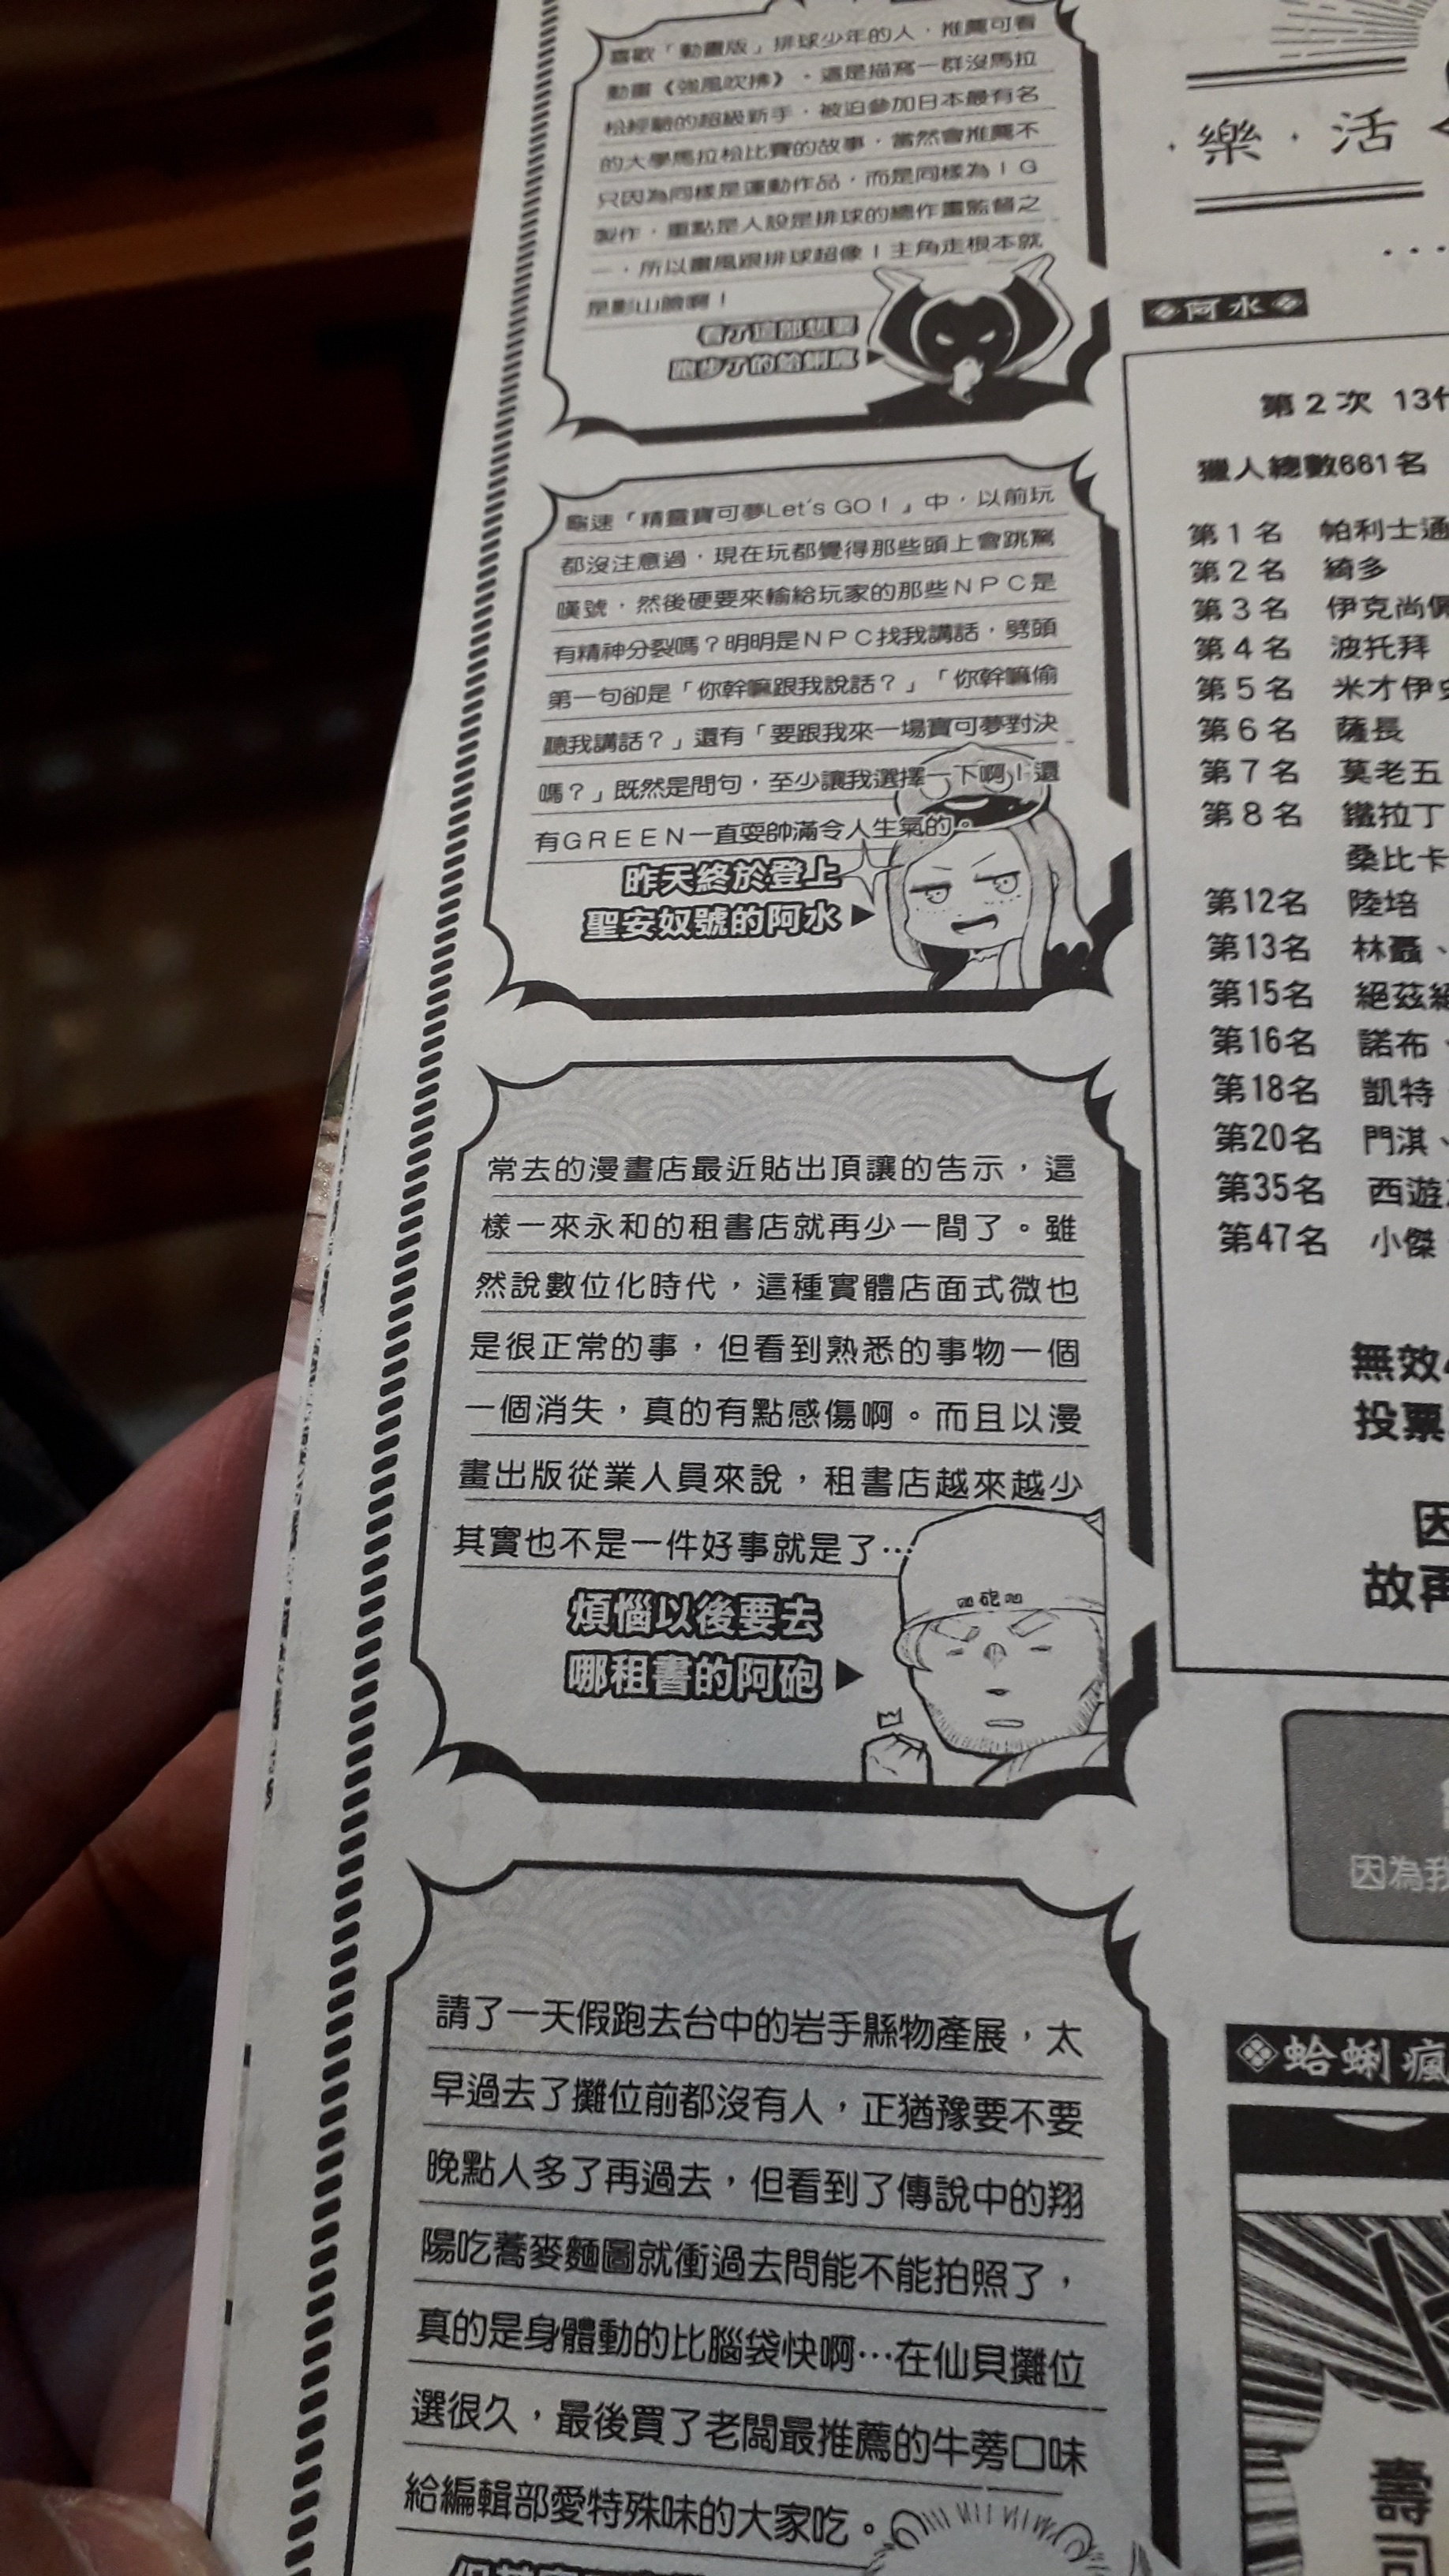 喜歡「動畫版」排球少年的人,推薦可看
動畫《強風吹拂》。這是描寫一群沒馬拉
松經驗的超級新手,被迫參加日本最有名
的大學馬拉松比賽的故事,當然會推薦不
只因為同樣是運動作品,而是同樣為IG
製作,重點是人設是排球的總作畫監督之
一,所以畫風跟排球超像!主角走根本就
是影山臉啊!
看了這部想要
跑步了的蛤蜊瘋
龜速「精靈寶可夢Let's GO!」中,以前玩
都沒注意過,現在玩都覺得那些頭上會跳驚
嘆號,然後硬要來輸給玩家的那些NPC是
有精神分裂嗎?明明是NPC找我講話,劈頭
第一句卻是「你幹嘛跟我說話?」「你幹嘛偷
聽我講話?」還有「要跟我來一場寶可夢對決
嗎?」既然是問句,至少讓我選擇一下啊!還
有GREEN一直耍帥滿令人生氣的。
昨天終於登上
聖安奴號的阿水▶
常去的漫畫店最近貼出頂讓的告示,這
樣一來永和的租書店就再少一間了。雖
然說數位化時代,這種實體店面式微也
是很正常的事,但看到熟悉的事物一個
一個消失,真的有點感傷啊。而且以漫
畫出版從業人員來說,租書店越來越少
其實也不是一件好事就是了…
煩惱以後要去
哪租書的阿砲▶
砲
請了一天假跑去台中的岩手縣物產展,太
早過去了攤位前都沒有人,正猶豫要不要
晚點人多了再過去,但看到了傳說中的翔
陽吃蕎麥麵圖就衝過去問能不能拍照了,
真的是身體動的比腦袋快啊…在仙貝攤位
選很久,最後買了老闆最推薦的牛蒡口味
給編輯部愛特殊味的大家吃。
・樂・活
阿水
第2次 13
獵人總數661名
第1名 帕利士通
第2名 綺多
第3名 伊克尚
第4名 波托拜
第5名 米才伊
第6名 薩長
第7名 莫老五
第8名 鐵拉丁
桑比卡
第12名 陸培
第13名 林聶、
第15名 絕茲
第16名 諾布、
第18名 凱特
第20名 門淇、
第35名 西遊
第47名 小傑
無效
投票
因
故再
因為我
蛤蜊瘋
壽
司